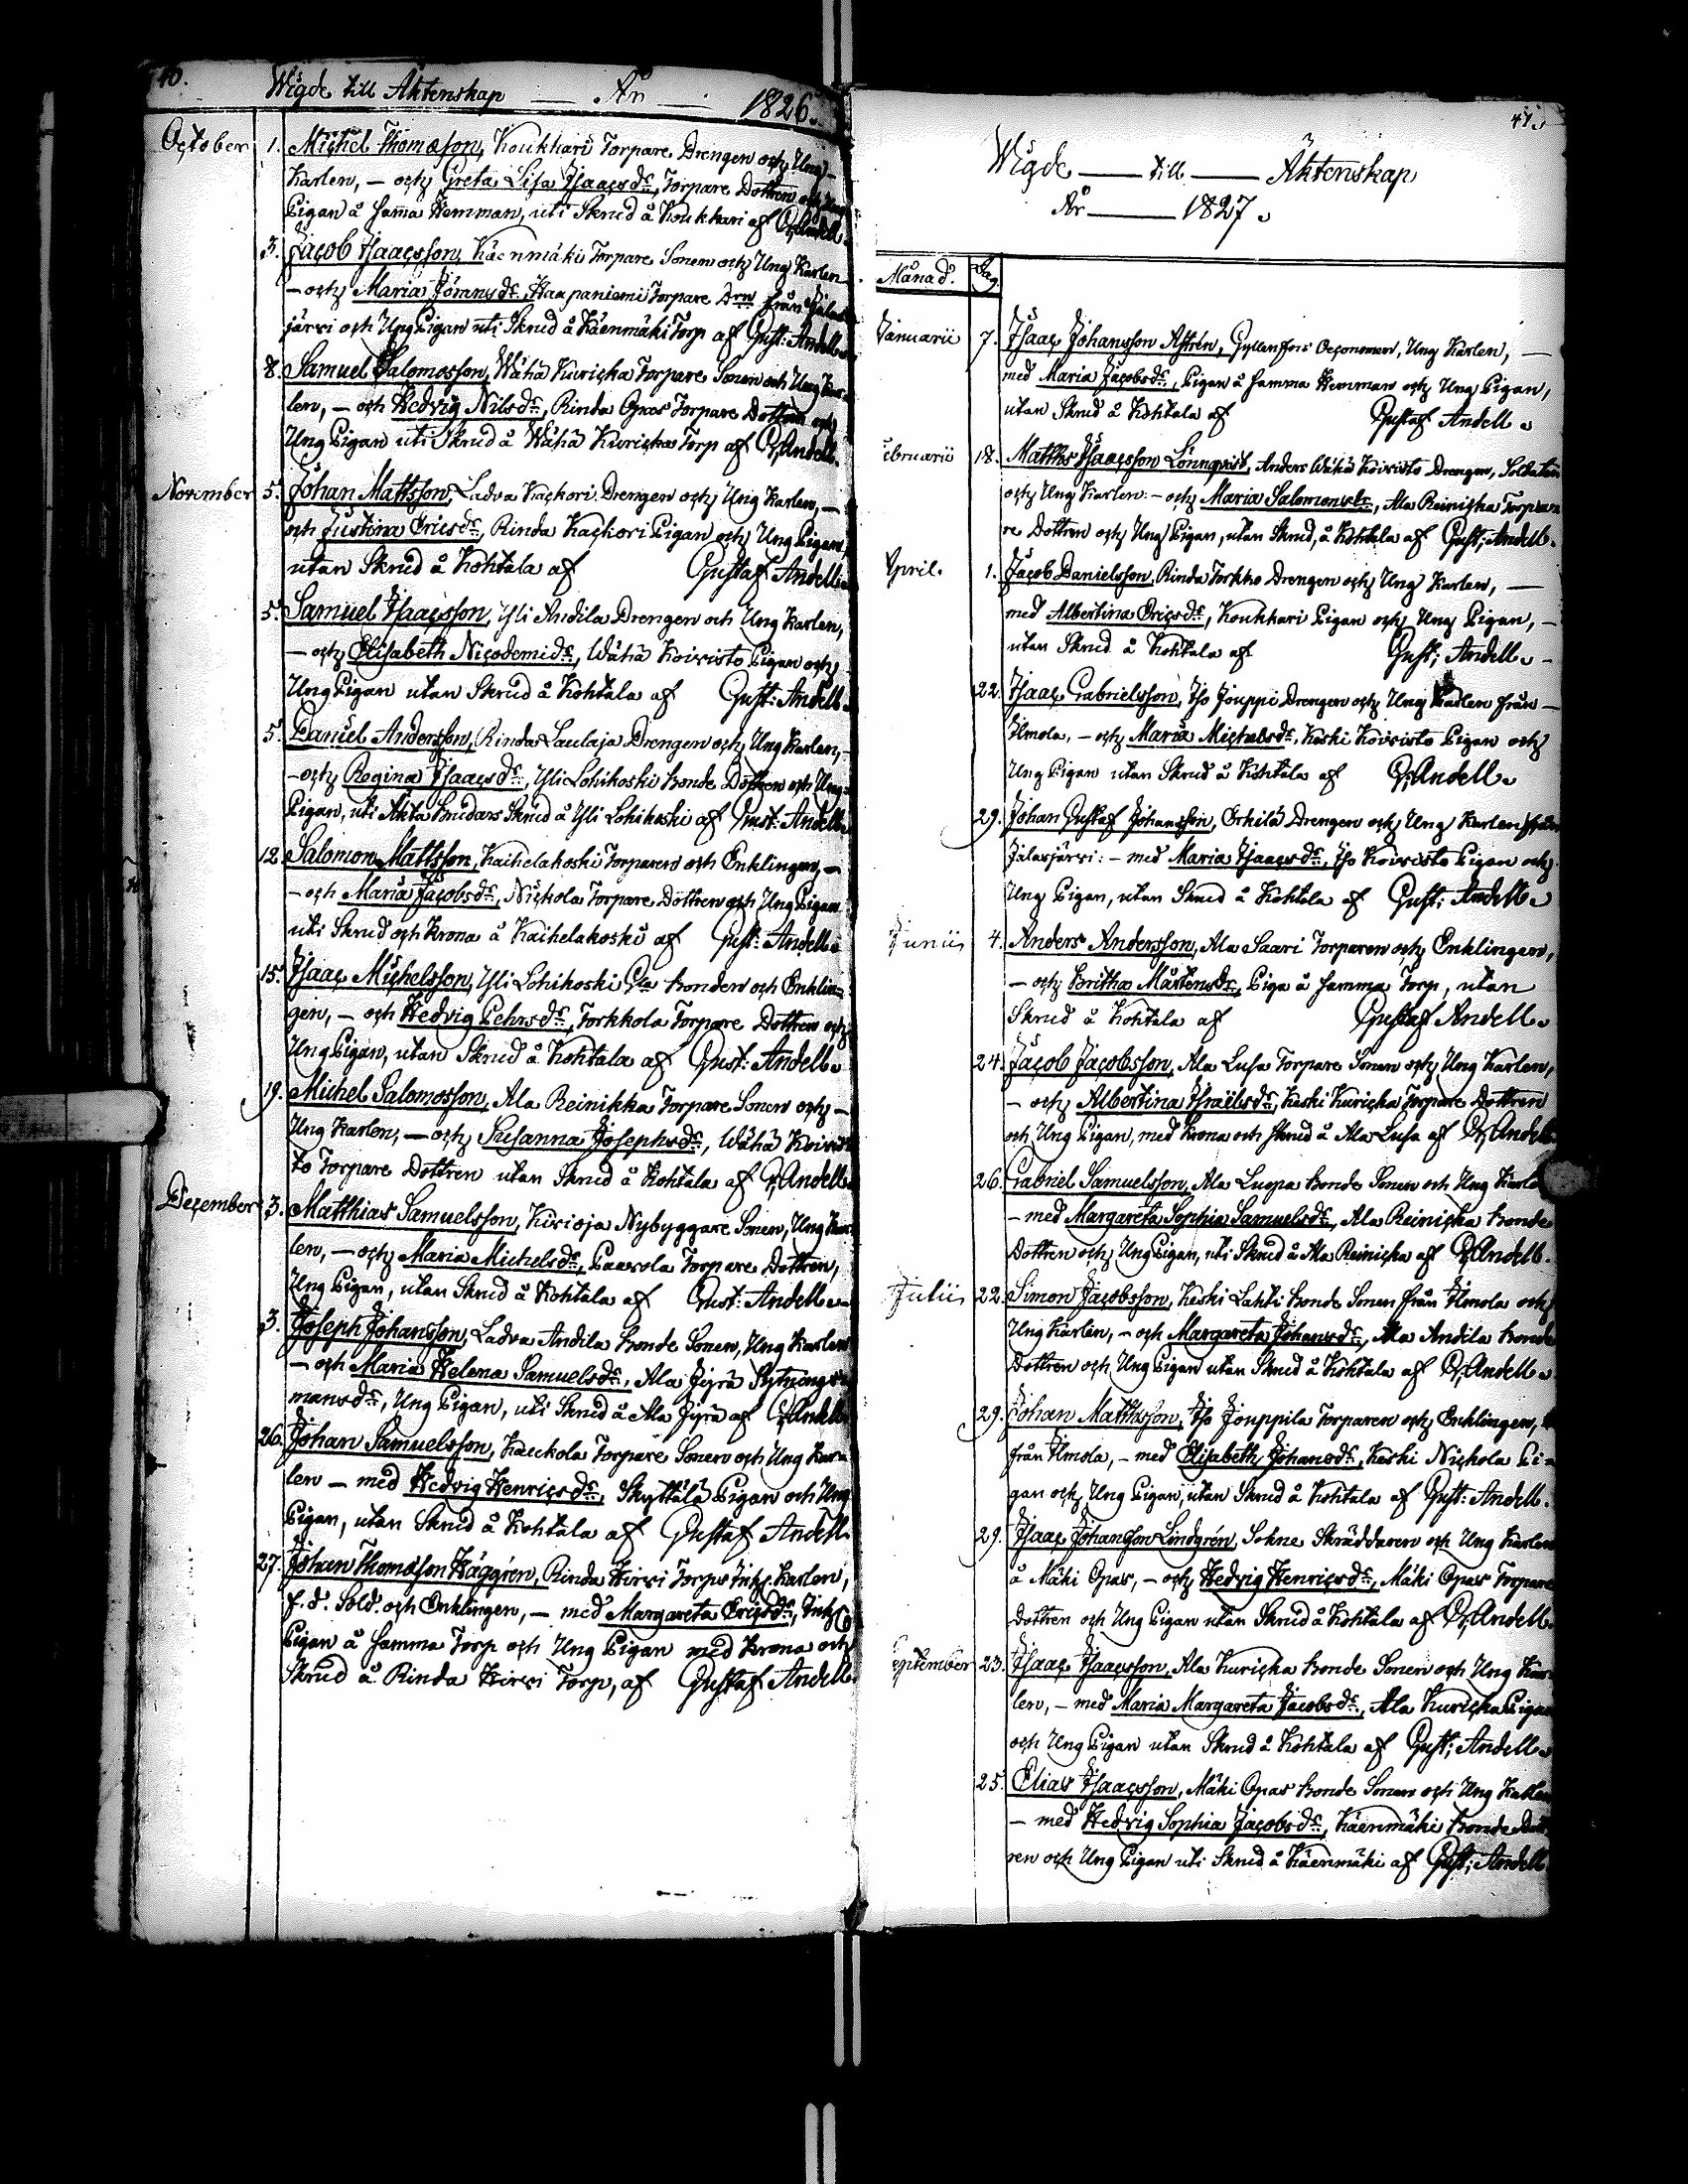 40.
Wigde till Äktenskap — År — 1826.
October 1. Michel Thomæson, Koukkari Torpare Drengen och Ung-
Karlen, — och Greta Lisa Isaacsdr, Torpare Dottren och Ung
Pigan å samma Hemman, uti Skrud å Koukkari af G. Andell.
3. Jacob Isaacsson, Käenmäki Torpare Sonen och Ung Karlen
— och Maria Jöransdr, Haapaniemi Torpare Drn från Jalas-
järvi och Ung Pigan uti Skrud å Käenmäki Torp af Gust: Andell.
8. Samuel Salomosson, Wähä Kuricka Torpare Sonen och Ung Kar-
len, — och Hedvig Nilsdr, Rinda Opas Torpare Dottren och
Ung Pigan uti Skrud å Wähä Kuricka Torp af G. Andell.
November 5. Johan Mattsson, Ladva Kackori Drengen och Ung Karlen, —
och Justina Ericsdr, Rinda Kackori Pigan och Ung Pigan,
utan Skrud å Kohtala af Gustaf Andell.
5. Samuel Isaacsson, Yli Andila Drengen och Ung Karlen,
— och Elisabeth Nicodemidr, Wähä Koivisto Pigan och
Ung Pigan utan Skrud å Kohtala af Gust: Andell.
5. Daniel Andersson, Rinda Laulaja Drengen och Ung Karlen,
— och Regina Isaacsdr, Yli Lohikoski Bonde Dottren och Ung-
Pigan, uti Äkta Brudars Skrud å Yli Lohikoski af Gust: Andell.
12. Salomon Mattsson, Kaihelakoski Torparen och Enklingen, —
— och Maria Jacobsdr, Nickola Torpare Dottren och Ung Pigan
uti Skrud och Krona å Kaihelakoski af Gust: Andell.
15. Isaac Michelsson, Yli Lohikoski Gla Bonden och Enklin-
gen, — och Hedvig Pehrsdr, Torkkola Torpare Dottren och
Ung Pigan, utan Skrud å Kohtala af Gust: Andell.
19. Michel Salomosson, Ala Reinikka Torpare Sonen och —
Ung Karlen, — och Susanna Josephsdr, Wähä Koivis-
to Torpare Dottren utan Skrud å Kohtala af G. Andell.
December 3. Matthias Samuelsson, Kirioja Nybyggare Sonen, Ung Kar-
len, — och Maria Michelsdr, Paavola Torpare Dottren,
Ung Pigan, utan Skrud å Kohtala af Gust: Andell.
3. Joseph Johansson, Ladva Andila Bonde Sonen, Ung Karlen
— och Maria Helena Samuelsdr, Ala Jyrä
mansdr, Ung Pigan, uti Skrud å Ala Jyrä af G. Andell.
26. Johan Samuelsson, Kauckola Torpare Sonen och Ung Kar-
len — med Hedvig Henricsdr, Skyttälä Pigan och Ung
Pigan, utan Skrud å Kohtala af Gustaf Andell.
27. Johan Thomæson Häggrén, Rinda Hirvi Torps Inhs Karlen,
f. d. Sold. och Enklingen, — med Margareta Ericsdr, Inhs
Pigan å samma Torp och Ung Pigan med Krona och
Skrud å Rinda Hirvi Torp, af Gustaf Andell.
41.
Wigde — till — Äktenskap
År — 1827.
Månad. Dag.
Januarii 7. Isaac Johansson Astrén, Gyllenfors Oeconomen, Ung Karlen, —
med Maria Jacobsdr, Pigan å samma Hemman och Ung Pigan,
utan Skrud å Kohtala af Gustaf Andell.
ebruarii 18. Matths Isaacsson Lönnqvist, Anders Wähä Koivisto Drengen, Soldaten
och Ung Karlen: — och Maria Salomonsdr, Ala Reinicka Torpa-
re Dottren och Ung Pigan, utan Skrud, å Kohtala af Gust; Andell.
April. 1. Jacob Danielsson, Rinda Torkko Drengen och Ung Karlen, —
med Albertina Ericsdr, Koukkari Pigan och Ung Pigan, —
utan Skrud å Kohtala af Gust; Andell.
22. Isaac Gabrielsson, Iso Jouppi Drengen och Ung Karlen från —
Ilmola, — och Maria Michelsdr, Keski Koivisto Pigan och
Ung Pigan utan Skrud å Kohtala af G. Andell.
29. Johan Gustaf Johansson, Orkila Drengen och Ung Karlen från
Jalasjärvi: — med Maria Isaacsdr, Iso Koivisto Pigan och
Ung Pigan, utan Skrud å Kohtala af Gust; Andell.
Junii 4. Anders Andersson, Ala Saari Torparen och Enklingen,
— och Britha Mårtensdr, Piga å samma Torp, utan
Skrud å Kohtala af Gustaf Andell.
24. Jacob Jacobsson, Ala Lusa Torpare Sonen och Ung Karlen,
— och Albertina Israëlsdr, Keski Kuricka Torpare Dottren
och Ung Pigan, med Krona och Skrud å Ala Lusa af G. Andell.
26. Gabriel Samuelsson, Ala Luopa Bonde Sonen och Ung Karle
— med Margareta Sophia Samuelsdr, Ala Reinicka Bonde
Dottren och Ung Pigan, uti Skrud å Ala Reinicka af G. Andell.
Julii 22. Simon Jacobsson, Keski Lahti Bonde Sonen från Ilmola och
Ung Karlen, — och Margareta Johansdr, Ala Andila Bonde
Dottren och Ung Pigan utan Skrud å Kohtala af G. Andell.
29. Johan Matthsson, Iso Jouppila Torparen och Enklingen,
från Ilmola, — med Elisabeth Johansdr, Keski Nickola Pi-
gan och Ung Pigan, utan Skrud å Kohtala af Gust: Andell.
29. Isaac Johansson Lindgrén, Sokne Skräddaren och Ung Karlen
å Mäki Opas, — och Hedvig Henricsdr, Mäki Opas Torpare
Dottren och Ung Pigan utan Skrud å Kohtala af G. Andell.
eptember 23. Isaac Isaacsson, Ala Kuricka Bonde Sonen och Ung Kar-
len, — med Maria Margareta Jacobsdr, Ala Kuricka Pigan
och Ung Pigan utan Skrud å Kohtala af Gust; Andell.
25. Elias Isaacsson, Mäki Opas Bonde Sonen och Ung Karlen
— med Hedvig Sophia Jacobsdr, Käenmäki Bonde Dott-
ren och Ung Pigan uti Skrud å Käenmäki af Gust; Andell